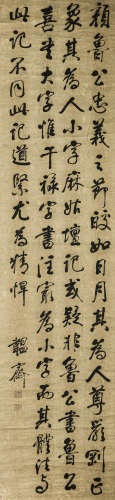 顏魯公忠義之節皎如日月其為人尊嚴剛正
象其為人小字麻姑壇記或疑非魯公書魯公
喜書大字惟干祿字書注最為小字而其體法與
此記不同此記遒緊尤為精悍 韞齋